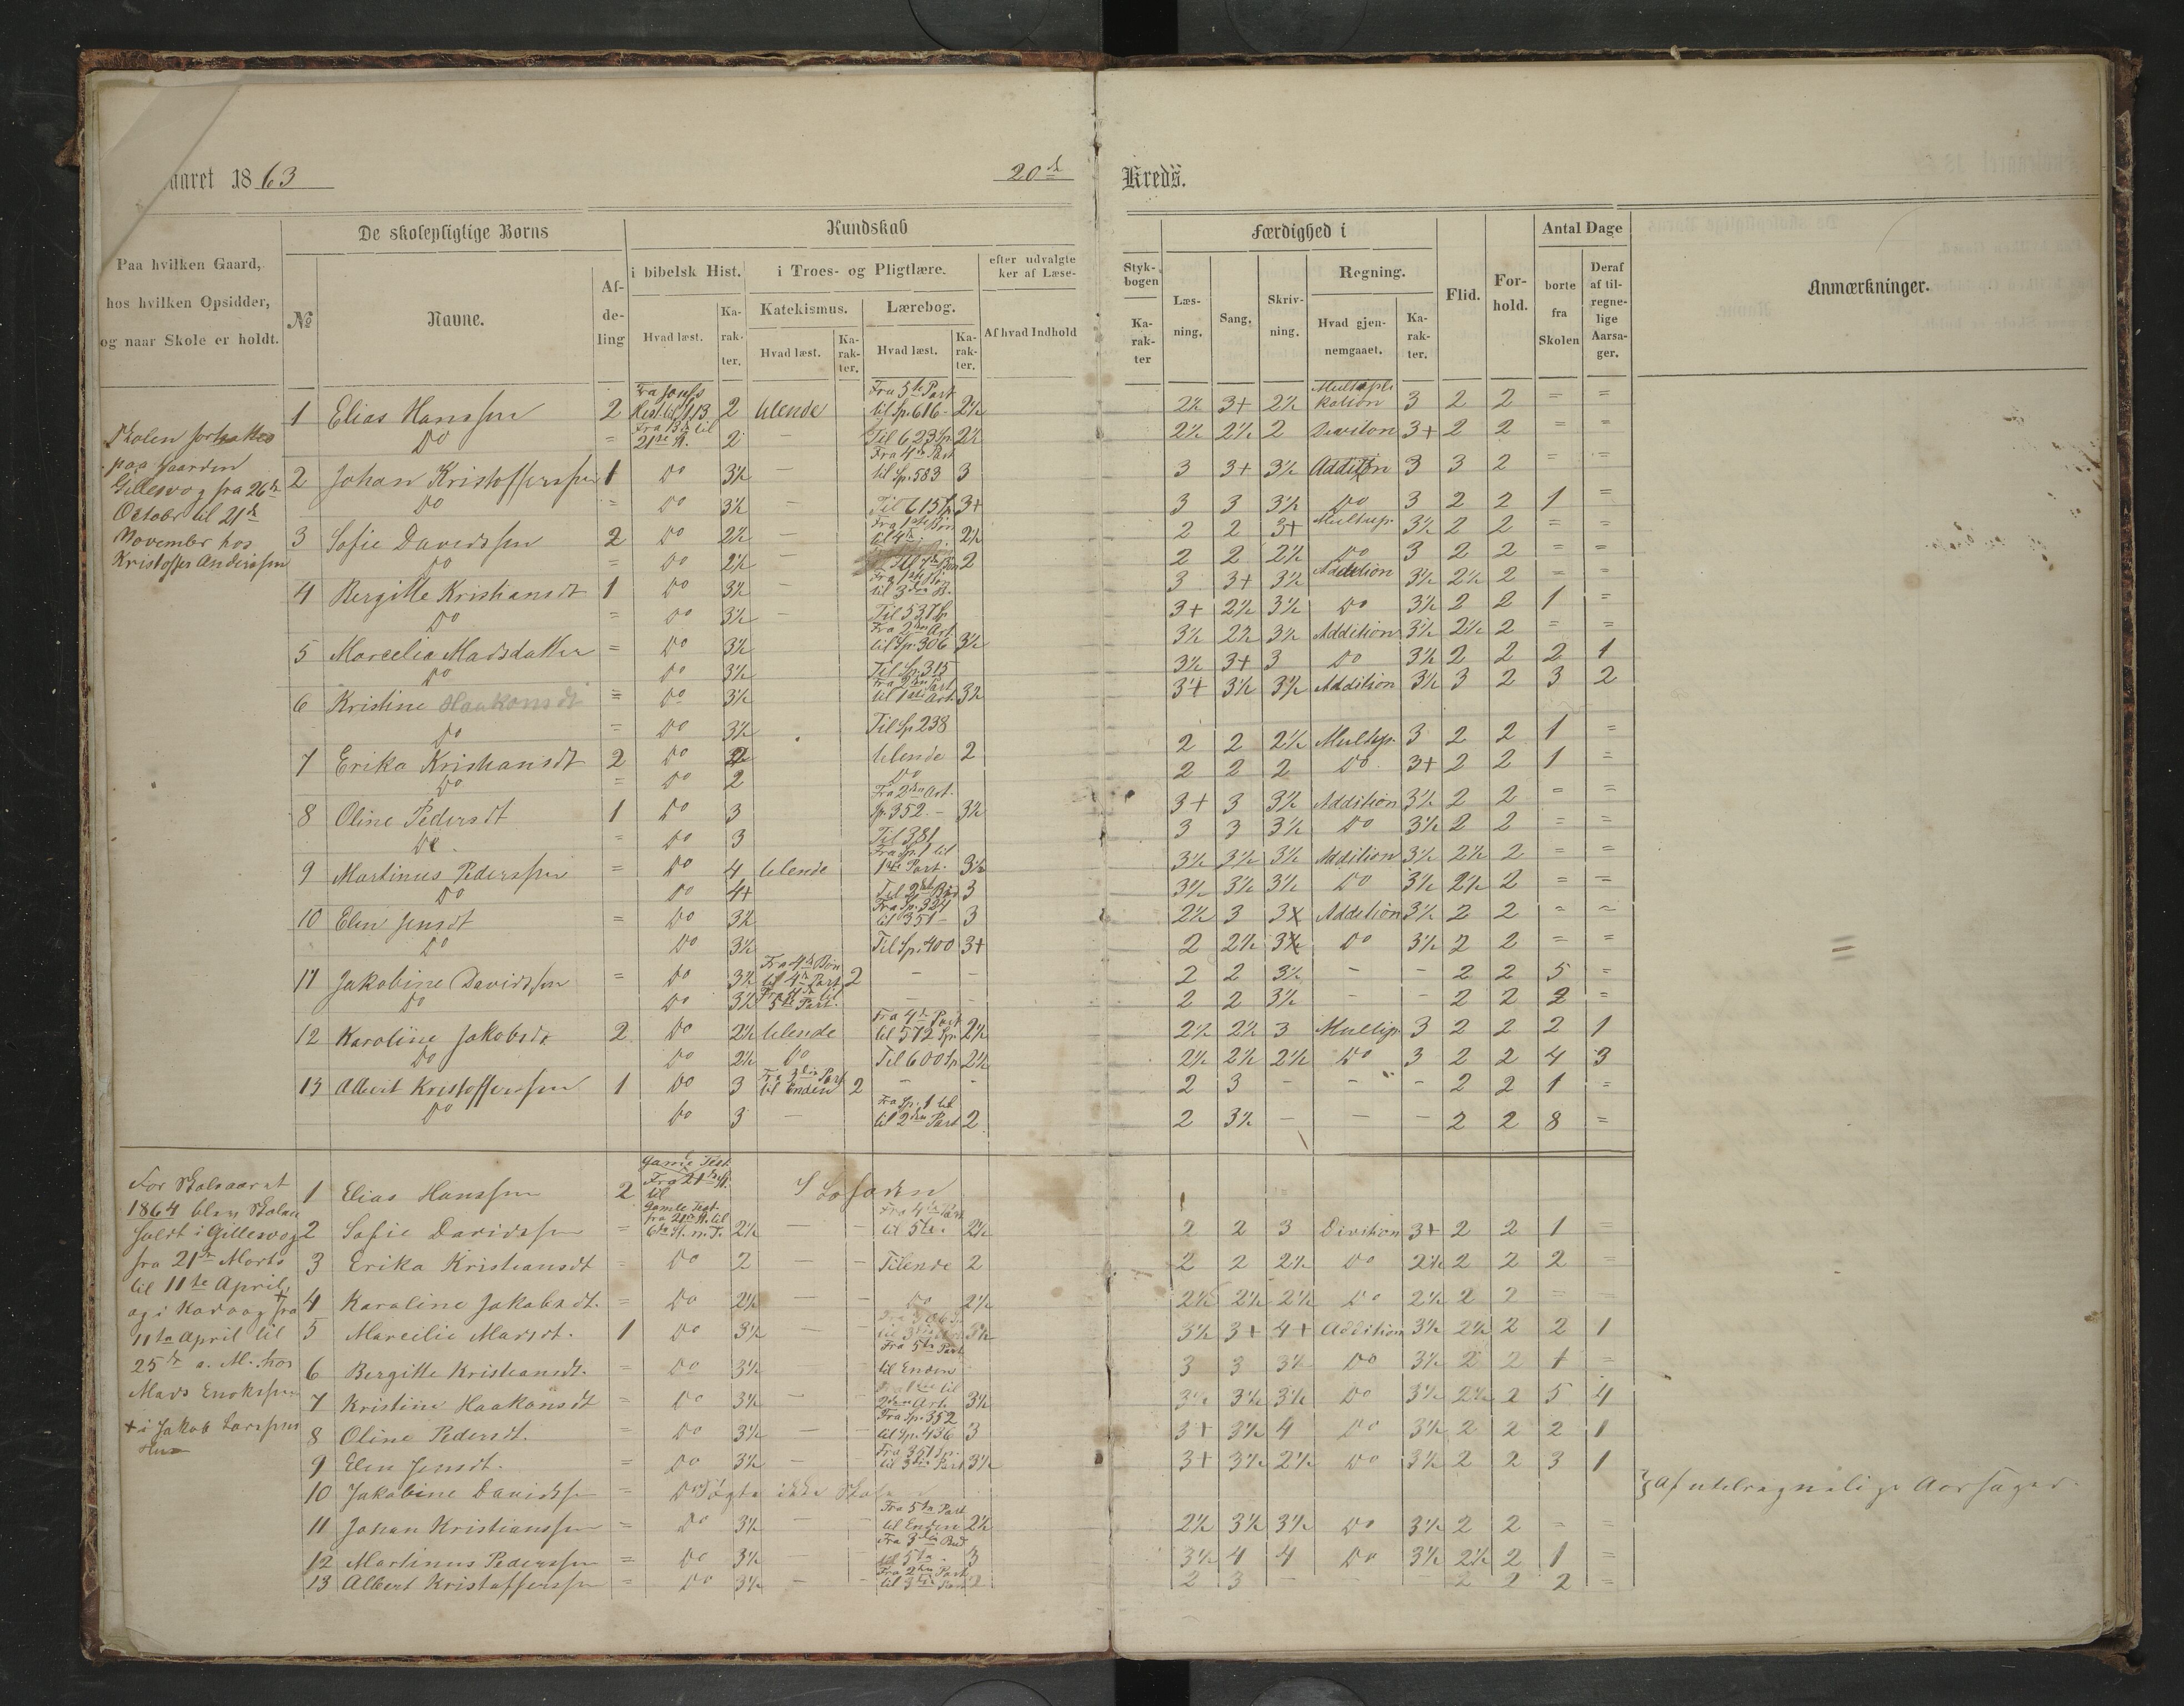 aaret 1863 20de Kreds.
De skolepligtige Børns
Kundskab
Færdighed i
Antal Dage
Paa hvilken Gaard,
hos hvilken Opsidder,
og naar Skole er holdt.
No
Navne.
Af-
de-
ling
i bibelsk Hist.
i Troes- og Pligtlære.
efter udvalgte
ker af Læse-
Styk-
bogen
Hvad læst.
Ka-
rak-
ter.
Katekismus.
Lærebog.
Hvad læst.
Ka-
rak-
ter.
Hvad læst.
Ka-
rak-
ter.
Af hvad Indhold
Ka-
rak-
ter
Læs-
ning.
Sang.
Skriv-
ning.
Regning.
Hvad gjen-
nemgaaet.
Ka-
rak-
ter.
Flid.
For-
hold.
borte
fra
Skolen
Deraf
af til-
regne-
lige
Aarsa-
ger.
Anmærkninger.
Skolen fortsattes
paa Gaarden
Gillesvog fra 26de
October til 21de
November hos
Kristoffer Anderssen
1 Elias Hanssen 2 2 Udende til Sp. 616 2½ 2½ 3+ 2½ Multipli
kation 3 2 2 = =
Do = 21de St. 2 – Til 623 Sp. 2½ 2½ 2½ 2 Division 3+ 2 2 = =
2 Johan Kristofferssen 1 Do 3½ – Fra 4de Part
til Sp. 583 3 3 3+ 3½ Addition 3 3 2 = =
Do = Do 3½ – Til 615 Sp. 3+ 3 3 3½ Do 3 2 2 1 =
3 Sofie Davidssen 2 Do 2½ – 2½ 2 2 3+ Multip. 3½ 2 2 = =
Do = Do 2½ – 2 2 2 2½ Do 3 2 2 = =
4 Bergitte Kristiansdt 1 Do 3½ – 3 3+ 3½ Addition 3½ 2½ 2 = =
Do = Do 3½ – Til 537 Sp. 3+ 2½ 3½ Do 3½ 2 2 1 =
5 Marcelia Madsdatter = Do 3½ Fra 2den Art.
til Sp. 306 3½ 3½ 2½ 3½ Addition 3½ 2½ 2 = =
Do Do 3½ Til Sp. 315 3½ 3+ 3 Do 3½ 2 2 2 1
6 Kristine Haakonsdt = Do 3½ 3½ 3+ 3½ 3½ Addition 3½ 3 2 3 2
Do = Do 3½ Til Sp. 238
7 Erika Kristiansdt 2 Do 2 Udende 2 2 2 2½ Multip. 3 2 2 1 =
Do = Do 2 Do 2 2 2 Do 3+ 2 2 1 =
8 Oline Pedersdt 1 Do 3 Fra 2den Art.
Sp. 352 – 3½ 3+ 3 3½ Addition 3½ 2 2 = =
Do = Do 3 Til 381 3 3 3½ Do 3½ 2 2 = =
9 Martinus Pederssen = Do 4 Udende Fra Sp. 1 til
1ste Part. 3½ 3½ 3½ 3½ Addition 3½ 2½ 2 = =
Do Do 4+ 3 3½ 3½ 3½ Do 3½ 2½ 2 = =
10 Elen Jensdt = Do 3½ Fra Sp. 324
til 351 – 3 2½ 3 3 Addition 3½ 2 2 = =
Do Do 3½ Til Sp. 400 3+ 2 2½ 3½ Do 3½ 2 2 = =
11 Jakobine Davidssen = Do 3½ Fra 4de Bøn
til 4de Part 2 – – 2 2 3½ – – 2 2 5 =
Do Do 3½ Fra 4de til
5te Part. – – 2 2 3½ – – 2 2 2 =
12 Karoline Jakobsdt 2 Do 2½ Udende Fra 4de Part
til 572 Sp. 2½ 2½ 2½ 3 Multip. 3 2 2 2 1
Do Do 2½ Do Til 600 Sp. 2½ 2½ 2½ 2½ Do 3 2 2 4 3
13 Albert Kristofferssen 1 Do 3 Fra 3die Part
til Enden 2 – – 2 3 – – – 2 2 1 =
Do Do 3 – Fra Sp. 1 til
til 2den Part 2 2 3½ – – – 2 2 8 =
For Skoleaaret
1864 blev Skolen
holdt i Gillesvog
fra 21de Marts
til 11te April
og i Kodvog fra
11te April til
25de s. M. hos
Mads Enokssen
+ i Jakob Larssens
Hus
1 Elias Hanssen 2 Gamle Test.
Fra 21de St.
til I Lofoden
2 Sofie Davidssen = Gamle Test.
fra 21de St. til
6te St. n. T. 2½ – – Fra 4de Part
til 5te. 2½ 2 2 3 Division 3+ 2 2 1 =
3 Erika Kristiansdt = Do 2 – – Tilende 2 2 2 2½ Do 2½ 2 2 2 =
4 Karoline Jakobsdt. = Do 2½ – – Do 2½ 2½ 2½ 2½ Do 2½ 2 2 = =
5 Marcilie Madsdt. 1 Do 3½ – – 3½ 3½ 3+ 4+ Addition 3½ 2½ 2 2 1
6 Bergitte Kristiansdt. = Do 3½ Fra 5te Part
til Enden – 3 3 3½ Do 3½ 2 2 1 =
7 Kristine Haakonsdt = Do 3½ – – 2den Art. 3½ 3½ 3½ 3½ Do 3½ 2½ 2 5 4
8 Oline Pedersdt. = Do 3½ – – Fra Sp. 352
til Sp. 436 3 3+ 3½ 4 Do 3½ 2 2 2 1
9 Elen Jensdt. = Do 3½ – – Fra 351 Sp.
til 3die Part 3½ 3+ 3½ 2½ Do 3½ 2 2 3 1
10 Jakobine Davidssen = Søgte ikke Skole } Af utilregnelige Aarsager.
11 Johan Kristianssen = Do 3½ – – Fra 5te Part
til Enden 2½ 2½ 3½ 3½ Do 3½ 2 2 = =
12 Martinus Pederssen = Do 3½ Fra 3die Bud
til 5te. 3 3½ 4 4 Do 3½ 2½ 2 1 =
13 Albert Kristofferssen = Do 3½ – – Fra 2den Part
2 2 3 – – 2 2 2 =